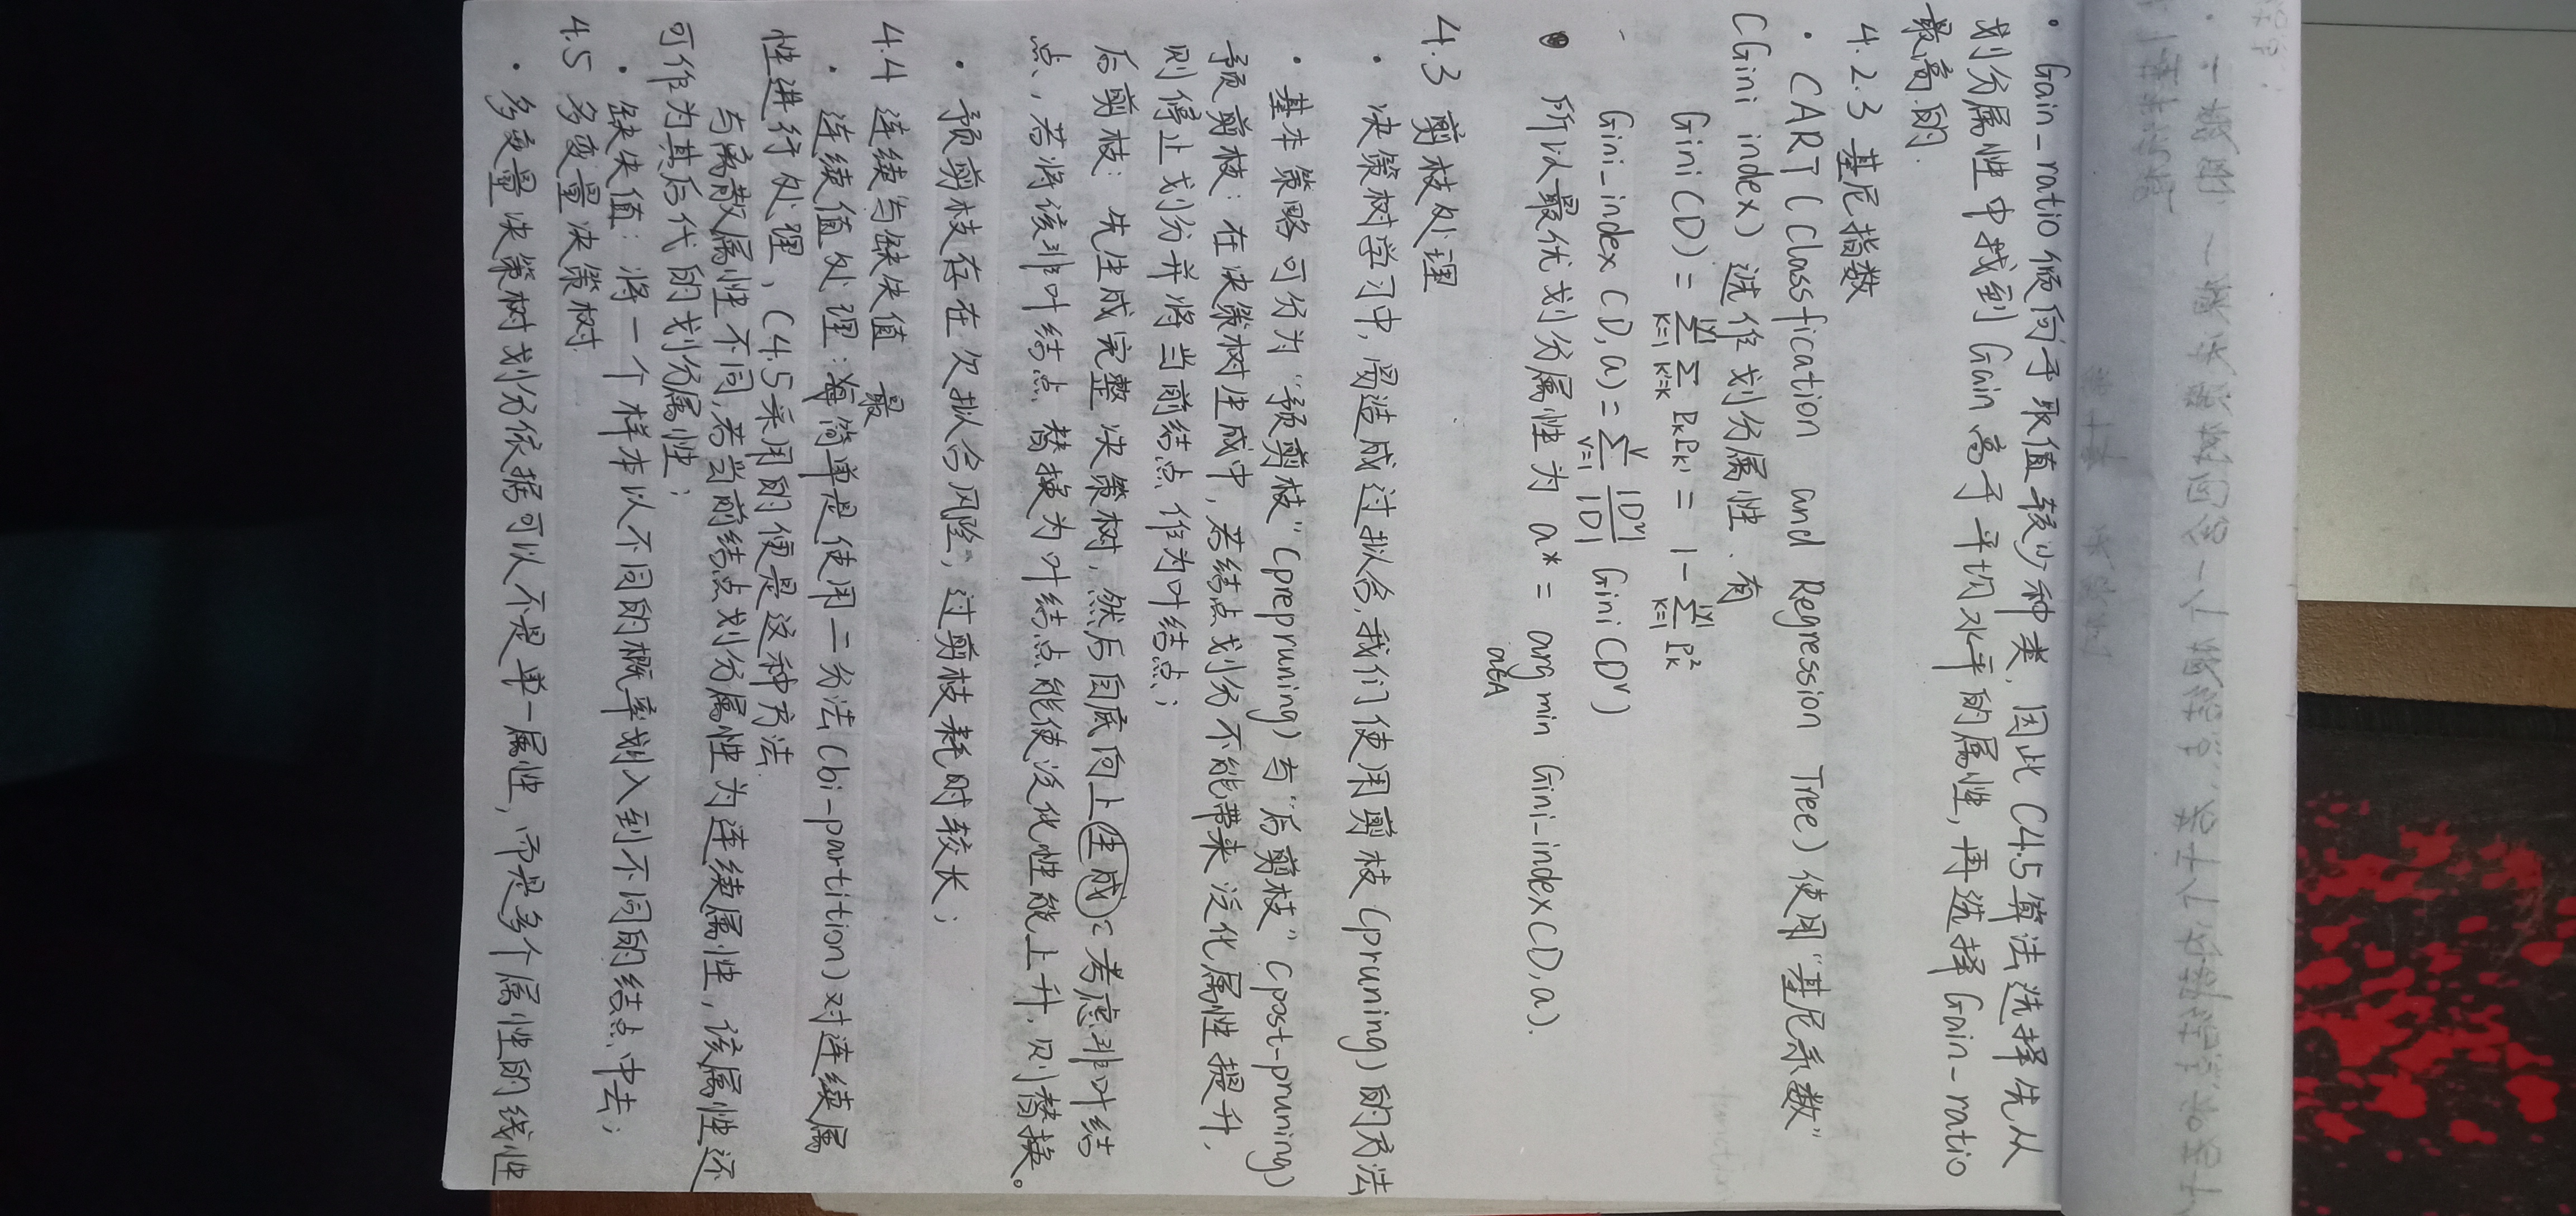 · Gain_ratio倾向于取值较少种类,因此C4.5算法选择先从
划分属性中找到Gain高于平均水平的属性,再选择Gain-ratio
最高的.
4.2.3 基尼指数
· CART(Classfication and Regression Tree)使用"基尼系数"
(Gini index)选作划分属性.有
Gini(D) = \sum_{k=1}^{|y|} \sum_{k'≠k} P_k P_{k'} = 1 - \sum_{k=1}^{|y|} P_k^2
Gini_index(D,a) = \sum_{v=1}^{V} \frac{|D^v|}{|D|} Gini(D^v)
所以最优划分属性为 a* = arg min Gini-index(D,a).
a∈A
4.3 剪枝处理
· 决策树学习中,易造成过拟合,我们使用剪枝(pruning)的方法
· 基本策略可分为"预剪枝"(prepruning)与"后剪枝"(post-pruning)
预剪枝:在决策树生成中,若结点划分不能带来泛化属性提升,
则停止划分并将当前结点作为叶结点;
后剪枝:先生成完整决策树,然后自底向上生成考虑非叶结
点,若将该非叶结点替换为叶结点能使泛化性能上升,则替换。
· 预剪枝存在欠拟合风险,过剪枝耗时较长;
4.4 连续与缺失值
最
· 连续值处理:简单是使用二分法(bi-partition)对连续属
性进行处理,C4.5采用的便是这种方法.
与离散属性不同,若当前结点划分属性为连续属性,该属性还
可作为其后代的划分属性;
· 缺失值:将一个样本以不同的概率划入到不同的结点中去;
4.5 多变量决策树.
· 多变量决策树划分依据可以不是单一属性,而是多个属性的线性